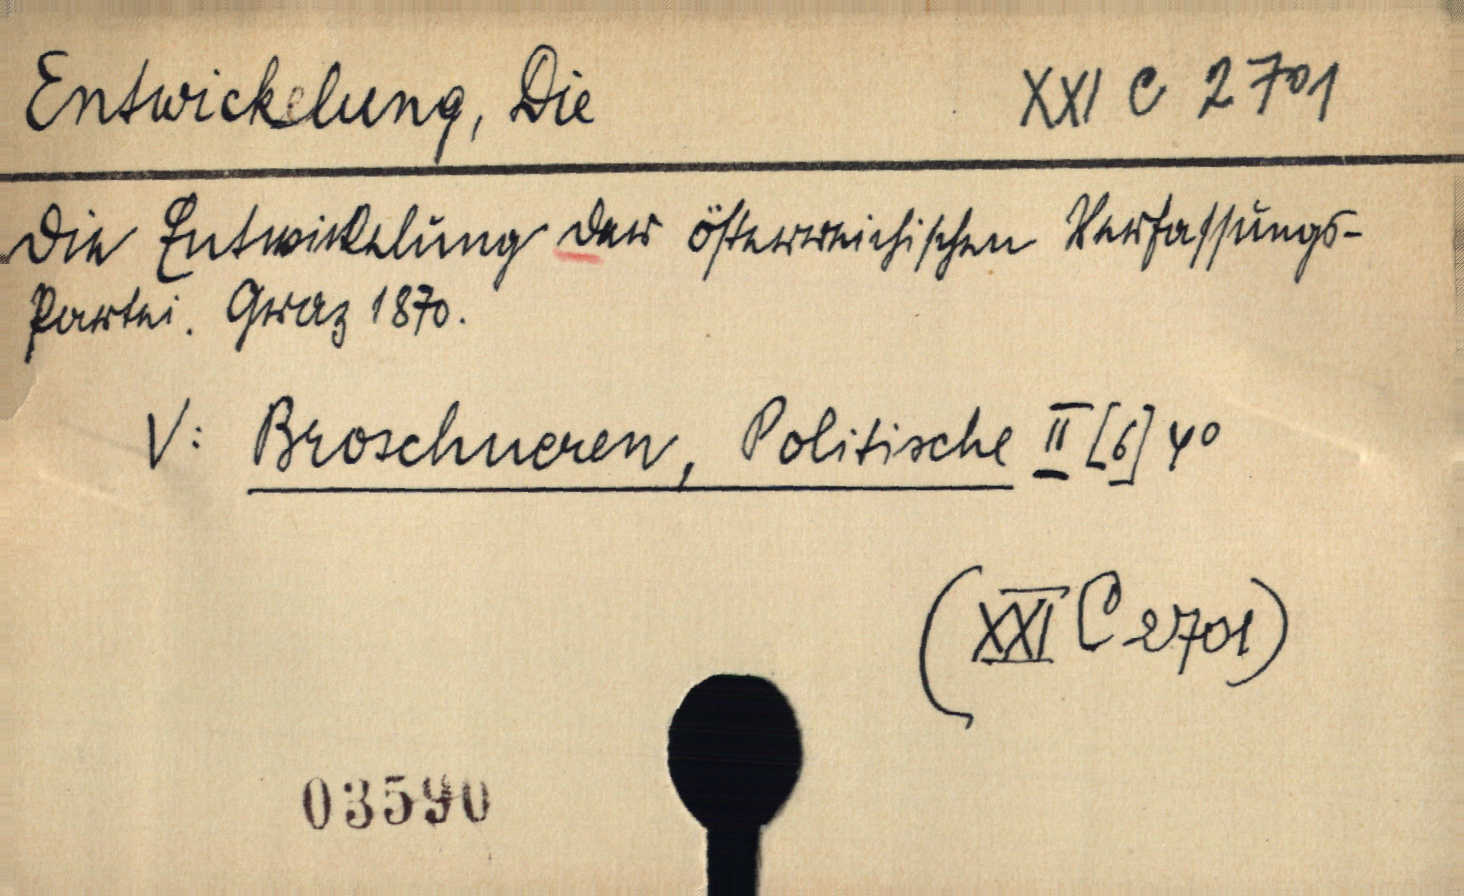 Entwickelung, Die XXI C 2701
Die Entwickelung der österreichischen Verfassungs-
Partei. Graz 1870.
V: Broschueren, Politische II [6] 4°
(XXI C 2701)
03590